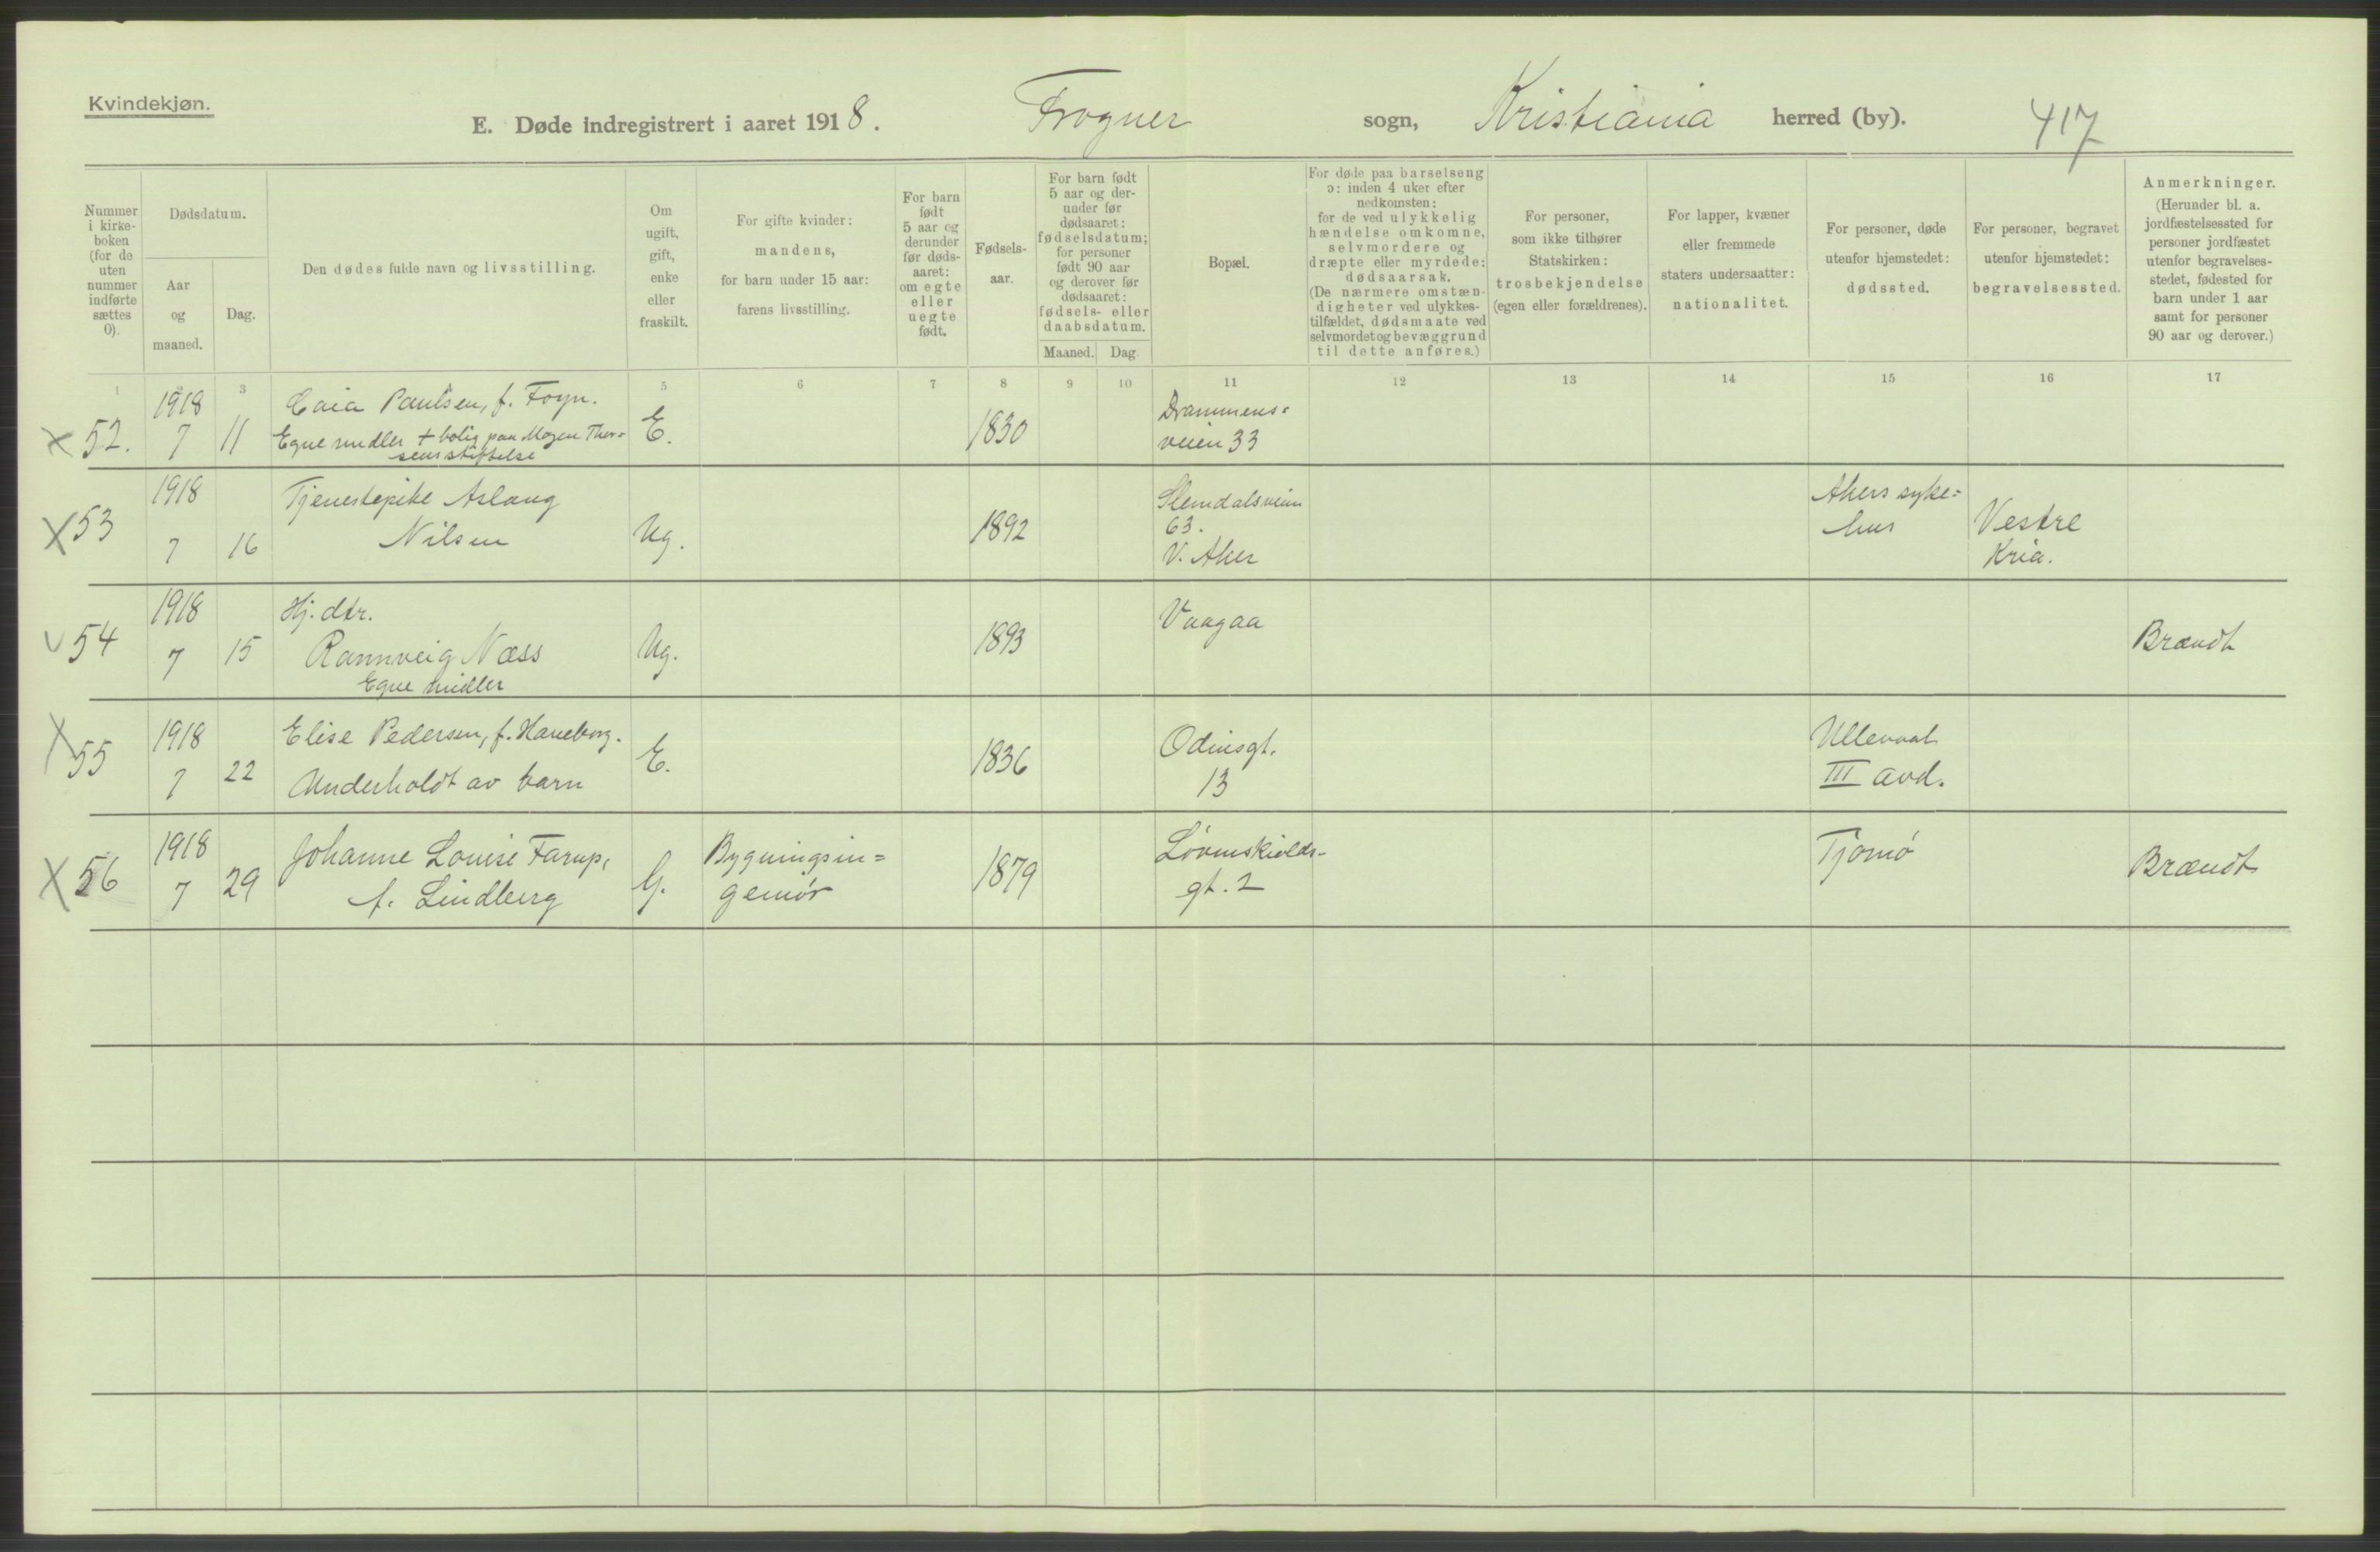 Kvindekjøn.
E. Døde indregistrert i aaret 1918. Frogner sogn, Kristiania herred (by). 417
Nummer
i kirke-
boken
(for de
uten
nummer
indførte
sættes
0).
Dødsdatum.
Aar
og
maaned.
Dag.
Den dødes fulde navn og livsstilling.
Om
ugift,
gift,
enke
eller
fraskilt.
For gifte kvinder:
mandens,
for barn under 15 aar:
farens livsstilling.
For barn
født
5 aar og
derunder
før døds-
aaret:
om egte
eller
uegte
født.
Fødsels-
aar.
For barn født
5 aar og der-
under før
dødsaaret:
fødselsdatum;
for personer
født 90 aar
og derover før
dødsaaret:
fødsels- eller
daabsdatum.
Maaned. Dag
Bopæl.
For døde paa barselseng
ɔ: inden 4 uker efter
nedkomsten:
for de ved ulykkelig
hændelse omkomne,
selvmordere og
dræpte eller myrdede:
dødsaarsak.
(De nærmere omstæn-
digheter ved ulykkes-
tilfældet, dødsmaate ved
selvmordet og bevæggrund
til dette anføres.)
For personer,
som ikke tilhører
Statskirken:
trosbekjendelse
(egen eller forældrenes).
For lapper, kvæner
eller fremmede
staters undersaatter:
nationalitet.
For personer, døde
utenfor hjemstedet:
dødssted.
For personer, begravet
utenfor hjemstedet:
begravelsessted.
Anmerkninger.
(Herunder bl. a.
jordfæstelsessted for
personer jordfæstet
utenfor begravelses-
stedet, fødested for
barn under 1 aar
samt for personer
90 aar og derover.)
1 3 5 6 7 8 9 10 11 12 13 14 15 16 17
x 52. 1918 7 11
Caia Paulsen, f. Foyn.
Egne midler + bolig paa Mogen Thor=
sens stiftelse
E. 1830
Drammens=
veien 33
x 53 1918 7 16
Tjenestepike Aslaug
Nilsen
Ug. 1892
Slemdalsveien
63.
V. Aker
Akers syke=
hus
Vestre
Kria.
v 54 1918 7 15
Hj. dtr.
Rannveig Næss
Egne midler
Ug. 1893
Vaagaa
Brændt
x 55 1918 7 22
Elise Pedersen, f. Haneborg.
Underholdt av barn
E. 1836
Odinsgt.
13
Ullevaal
III avd.
x 56 1918 7 29
Johanne Louise Farup,
f. Lindberg
G.
Bygningsin=
geniør
1879
Løvenskiolds-
gt. 2
Tjømø
Brændt